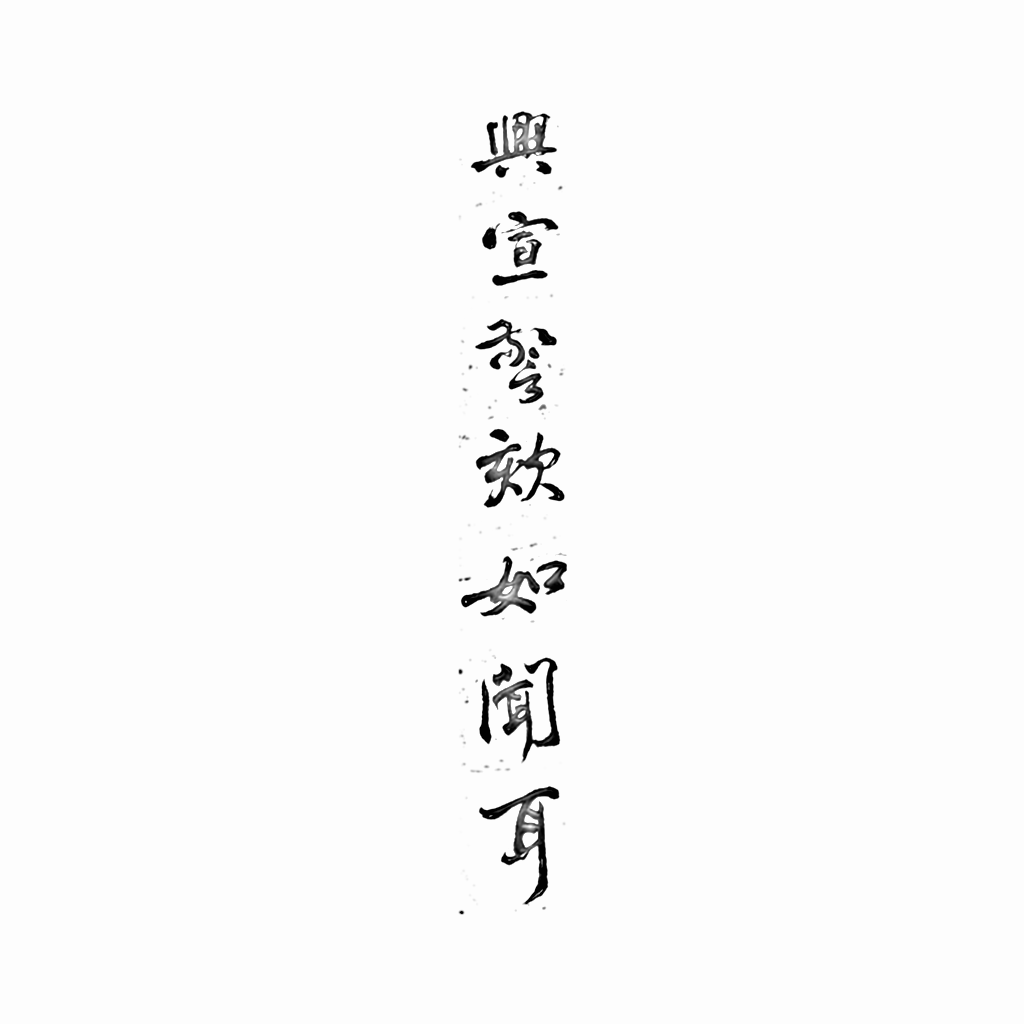 興宣謦欬如聞耳